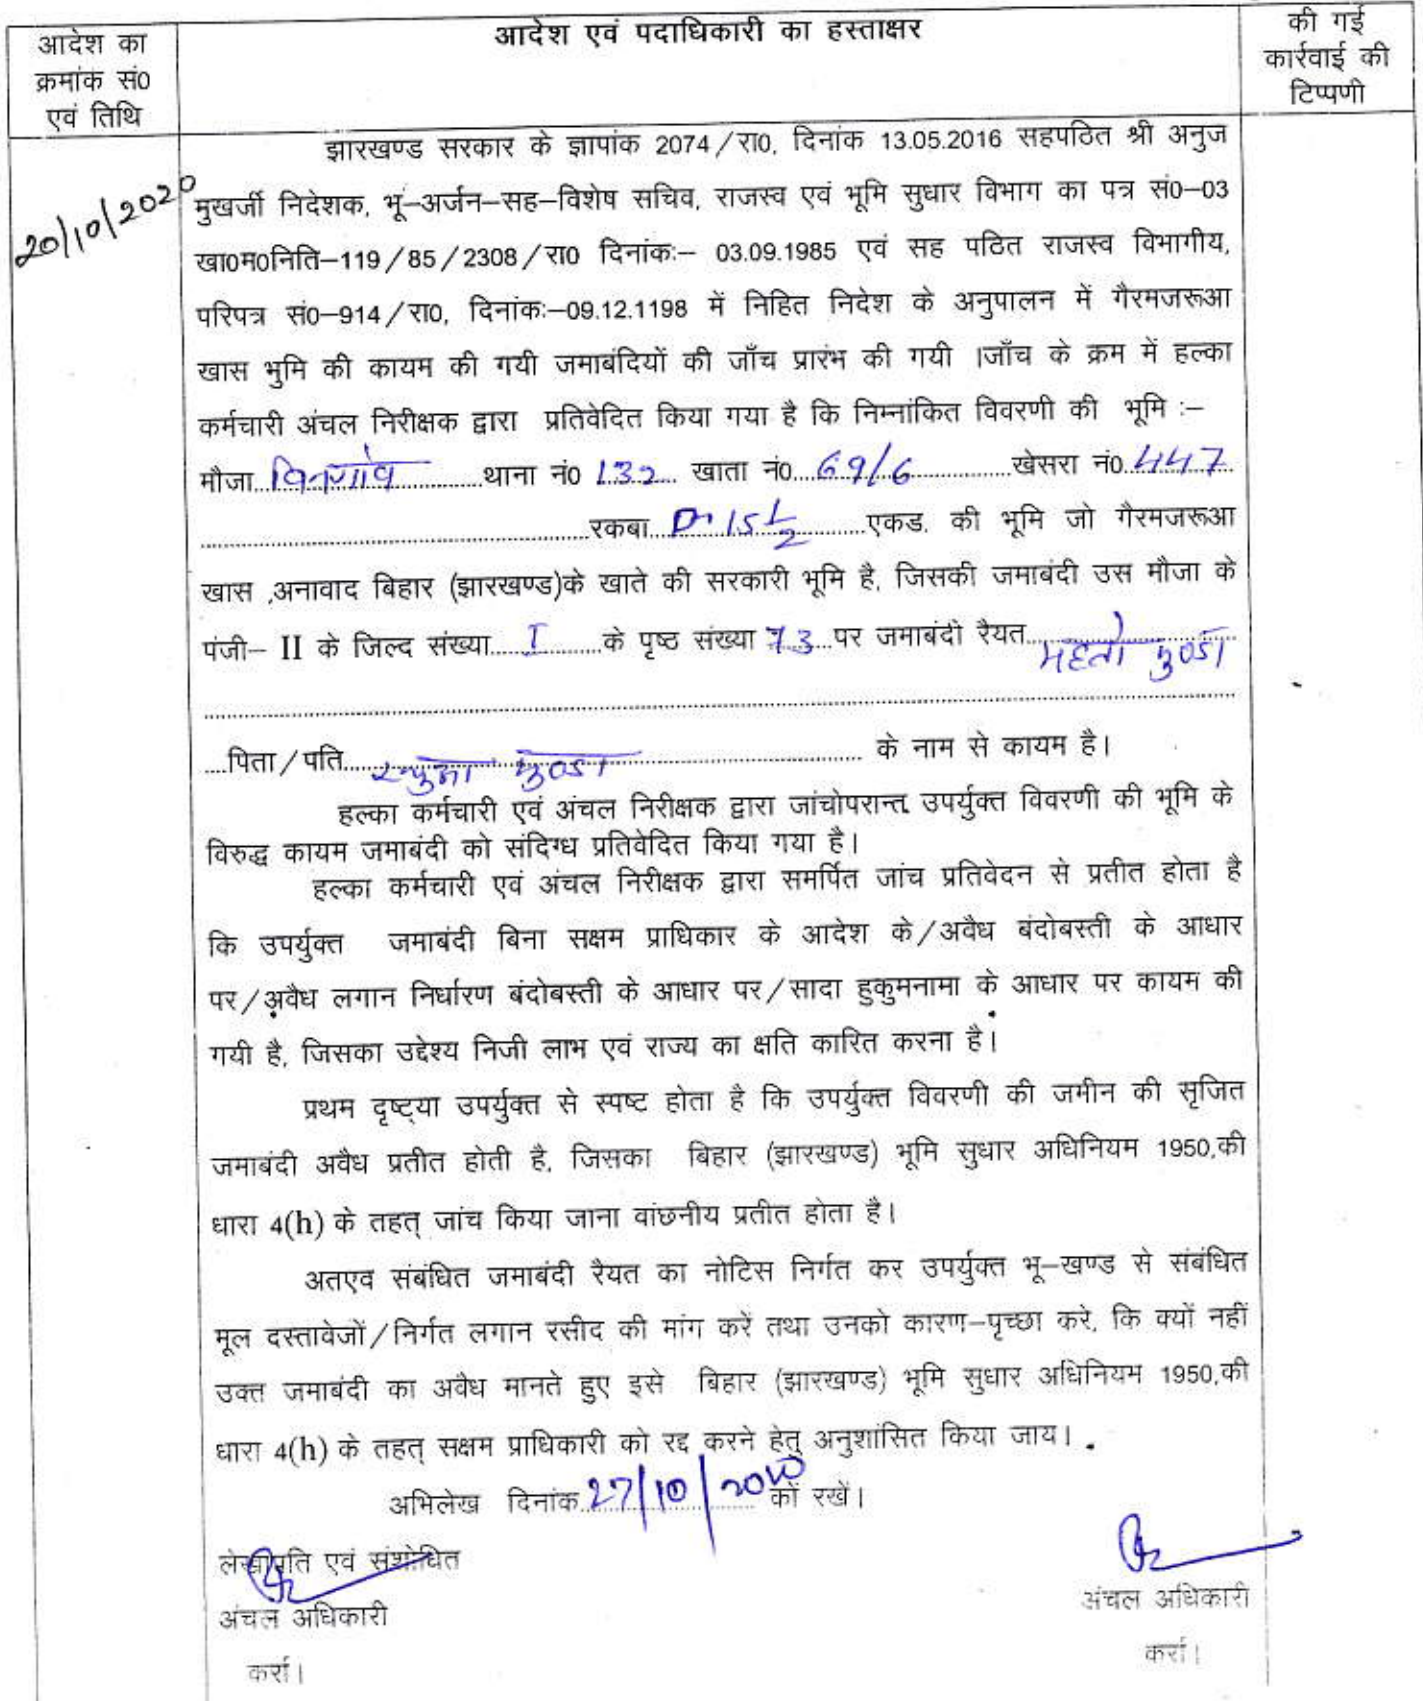 आदेश का
क्रमांक सं0
एवं तिथि
आदेश एवं पदाधिकारी का हस्ताक्षर
की गई
कार्रवाई की
टिप्पणी
20/10/2020
झारखण्ड सरकार के ज्ञापांक 2074/रा0, दिनांक 13.05.2016 सहपठित श्री अनुज
मुखर्जी निदेशक, भू–अर्जन–सह–विशेष सचिव, राजस्व एवं भूमि सुधार विभाग का पत्र सं0–03
खा0म0निति–119/85/2308/रा0 दिनांकः– 03.09.1985 एवं सह पठित राजस्व विभागीय,
परिपत्र सं0–914/रा0, दिनांकः–09.12.1198 में निहित निदेश के अनुपालन में गैरमजरूआ
खास भुमि की कायम की गयी जमाबंदियों की जाँच प्रारंभ की गयी ।जाँच के क्रम में हल्का
कर्मचारी अंचल निरीक्षक द्वारा प्रतिवेदित किया गया है कि निम्नांकित विवरणी की भूमि :–
मौजा.................थाना नं0 132 खाता नं0 69/6 खेसरा नं0 447
रकबा 15 1/2 एकड. की भूमि जो गैरमजरूआ
खास ,अनावाद बिहार (झारखण्ड)के खाते की सरकारी भूमि है, जिसकी जमाबंदी उस मौजा के
पंजी– II के जिल्द संख्या I के पृष्ठ संख्या 73 पर जमाबंदी रैयत महतो मुण्डा
पिता/पति मुण्डा के नाम से कायम है।
हल्का कर्मचारी एवं अंचल निरीक्षक द्वारा जांचोपरान्त उपर्युक्त विवरणी की भूमि के
विरुद्ध कायम जमाबंदी को संदिग्ध प्रतिवेदित किया गया है।
हल्का कर्मचारी एवं अंचल निरीक्षक द्वारा समर्पित जांच प्रतिवेदन से प्रतीत होता है
कि उपर्युक्त जमाबंदी बिना सक्षम प्राधिकार के आदेश के/अवैध बंदोबस्ती के आधार
पर/अवैध लगान निर्धारण बंदोबस्ती के आधार पर/सादा हुकुमनामा के आधार पर कायम की
गयी है, जिसका उद्देश्य निजी लाभ एवं राज्य का क्षति कारित करना है।
प्रथम दृष्ट्या उपर्युक्त से स्पष्ट होता है कि उपर्युक्त विवरणी की जमीन की सृजित
जमाबंदी अवैध प्रतीत होती है, जिसका बिहार (झारखण्ड) भूमि सुधार अधिनियम 1950,की
धारा 4(h) के तहत् जांच किया जाना वांछनीय प्रतीत होता है।
अतएव संबंधित जमाबंदी रैयत का नोटिस निर्गत कर उपर्युक्त भू–खण्ड से संबंधित
मूल दस्तावेजों/निर्गत लगान रसीद की मांग करें तथा उनको कारण–पृच्छा करे, कि क्यों नहीं
उक्त जमाबंदी का अवैध मानते हुए इसे बिहार (झारखण्ड) भूमि सुधार अधिनियम 1950,की
धारा 4(h) के तहत् सक्षम प्राधिकारी को रद्द करने हेतु अनुशांसित किया जाय।
अभिलेख दिनांक 27/10/2020 कों रखें।
लेखापति एवं संशोधित
अंचल अधिकारी
कर्रा।
अंचल अधिकारी
कर्रा।